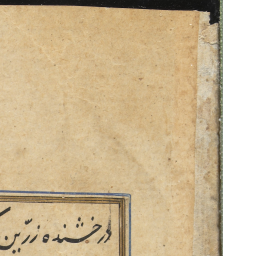 درخشنده زرّین